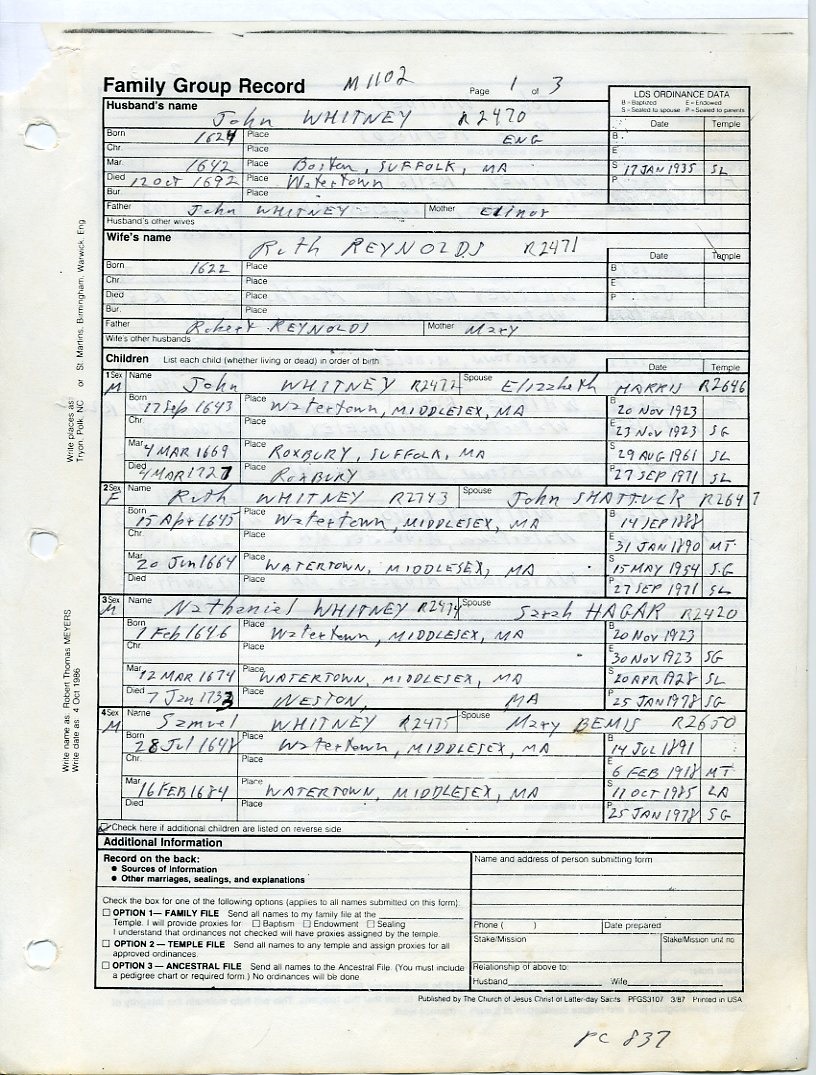 Family Group Record M1102 Page 1 of 3
LDS ORDINANCE DATA
B - Baptized E - Endowed
S - Sealed to spouse P - Sealed to parents
Husband's name John WHITNEY R2470 Date Temple
Born 1624 Place ENG B
Chr. Place E
Mar. 1642 Place Boston, SUFFOLK, MA S 17 JAN 1935 SL
Died 12 Oct 1692 Place Watertown P
Bur. Place
Father John WHITNEY Mother Elinor
Husband's other wives
Wife's name Ruth REYNOLDS R2471 Date Temple
Born 1622 Place B
Chr. Place E
Died Place P
Bur. Place
Father Robert REYNOLDS Mother Mary
Wife's other husbands
Children List each child (whether living or dead) in order of birth Date Temple
1 Sex M Name John WHITNEY R2472 Spouse Elizabeth HARRIS R2646
Born 17 Sep 1643 Place Watertown, MIDDLESEX, MA B 20 NOV 1923
Chr. Place E 23 NOV 1923 SG
Mar. 4 MAR 1669 Place ROXBURY, SUFFOLK, MA S 29 AUG 1961 SL
Died 4 MAR 1727 Place ROXBURY P 27 SEP 1971 SL
2 Sex F Name Ruth WHITNEY R2743 Spouse John SHATTUCK R2647
Born 15 Apr 1645 Place Watertown, MIDDLESEX, MA B 14 SEP 1888
Chr. Place E 31 JAN 1890 MT
Mar. 20 Jun 1664 Place WATERTOWN, MIDDLESEX, MA S 15 MAY 1954 SG
Died Place P 27 SEP 1971 SL
3 Sex M Name Nathaniel WHITNEY R2474 Spouse Sarah HAGAR R2420
Born 1 Feb 1646 Place Watertown, MIDDLESEX, MA B 20 NOV 1923
Chr. Place E 30 NOV 1923 SG
Mar. 12 MAR 1674 Place WATERTOWN, MIDDLESEX, MA S 20 APR 1928 SL
Died 7 Jan 1733 Place WESTON, MA P 25 JAN 1978 SG
4 Sex M Name Samuel WHITNEY R2475 Spouse Mary BEMIS R2650
Born 28 Jul 1648 Place Watertown, MIDDLESEX, MA B 14 JUL 1891
Chr. Place E 6 FEB 1918 MT
Mar. 16 FEB 1684 Place WATERTOWN, MIDDLESEX, MA S 11 OCT 1985 LA
Died Place P 25 JAN 1978 SG
Check here if additional children are listed on reverse side
Additional Information
Record on the back:
• Sources of information
• Other marriages, sealings, and explanations
Check the box for one of the following options (applies to all names submitted on this form):
☐ OPTION 1— FAMILY FILE Send all names to my family file at the
Temple. I will provide proxies for ☐ Baptism ☐ Endowment ☐ Sealing
I understand that ordinances not checked will have proxies assigned by the temple.
☐ OPTION 2 — TEMPLE FILE Send all names to any temple and assign proxies for all
approved ordinances.
☐ OPTION 3 — ANCESTRAL FILE Send all names to the Ancestral File. (You must include
a pedigree chart or required form.) No ordinances will be done.
Name and address of person submitting form
Phone ( ) Date prepared
Stake/Mission Stake/Mission unit no
Relationship of above to:
Husband Wife
Published by The Church of Jesus Christ of Latter-day Saints PFGS3107 3/87 Printed in USA
PC 837
Write places as: Tryon, Polk, NC or St. Martins, Birmingham, Warwick, Eng
Write name as: Robert Thomas MEYERS
Write date as: 4 Oct 1986